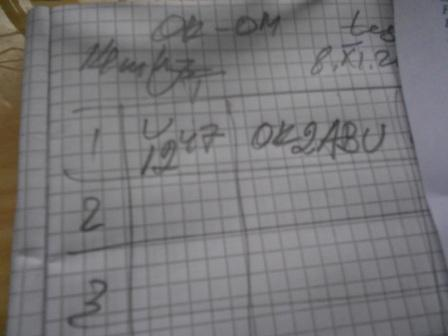 OK-OM
8.XI.2
1 U 12⁴⁷ OK2ABU
2
3